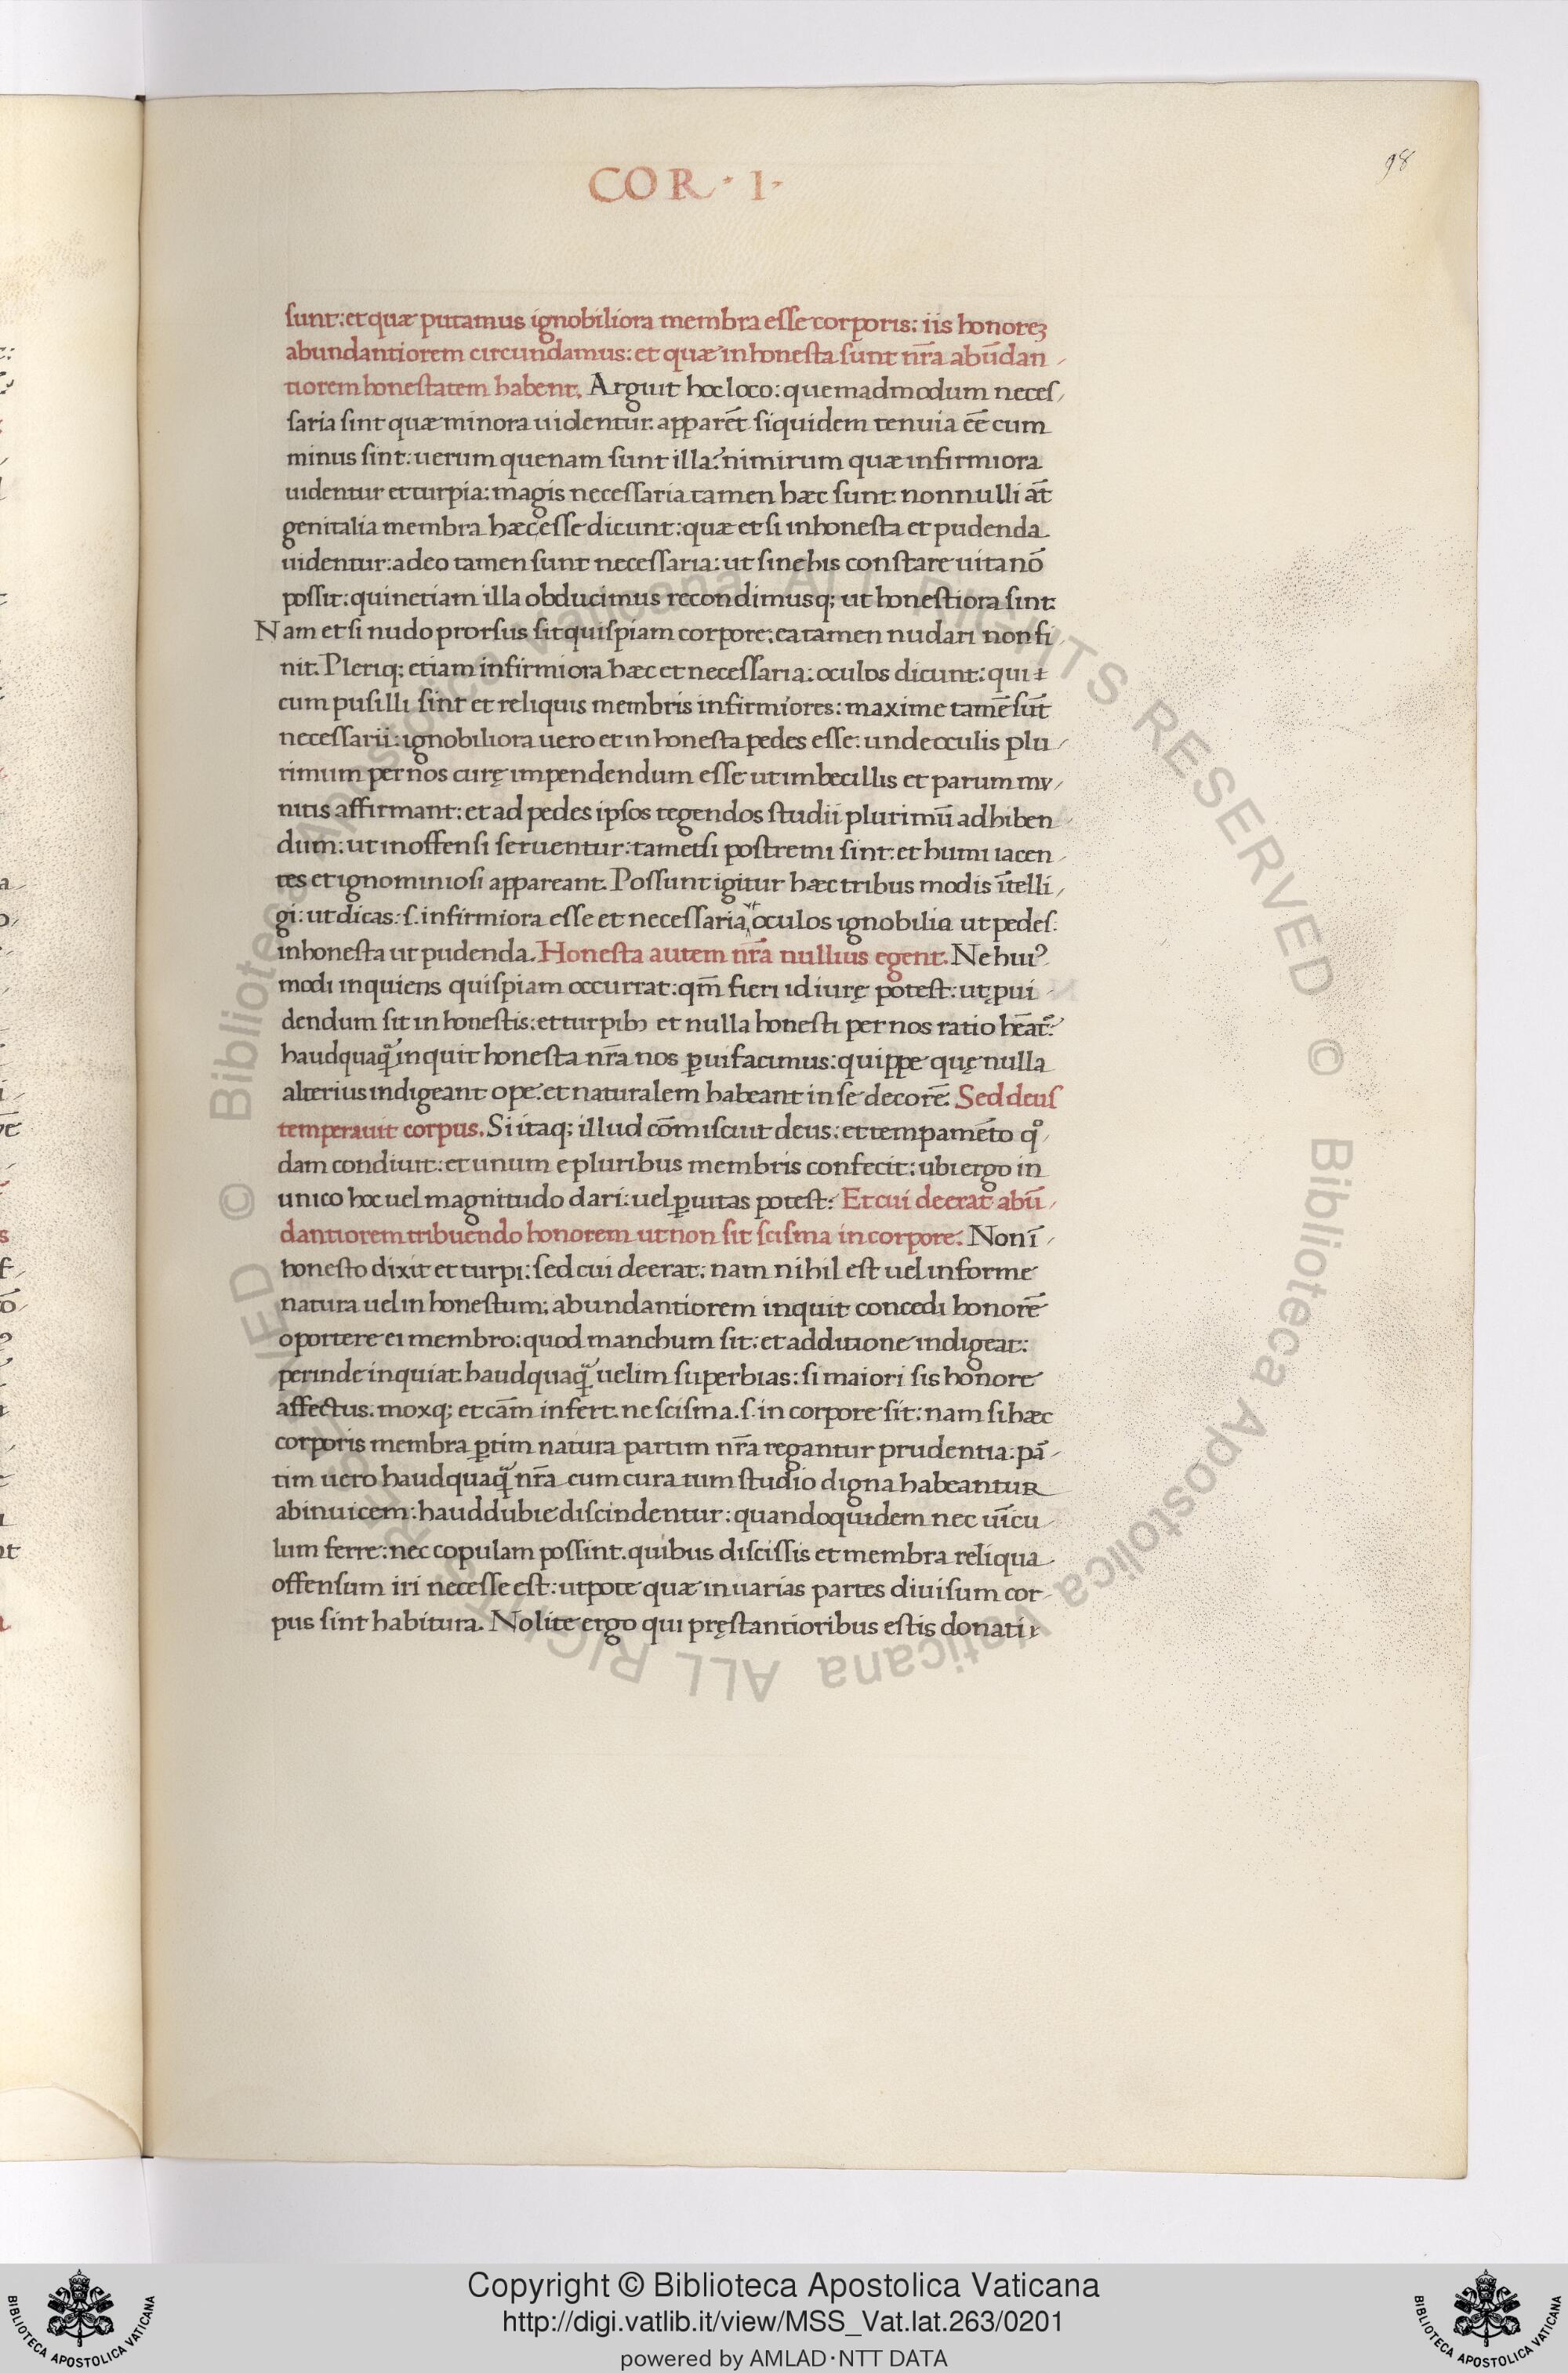 COR · I ·
98
sunt: et quæ putamus ignobiliora membra esse corporis: iis honoreȝ
abundantiorem circundamus: et quæ inhonesta sunt nr̄a abūdan
tiorem honestatem habent. Arguit hoc loco: quemadmodum neces
saria sint quæ minora uidentur. apparēt siquidem tenuia eē cum
minus sint: uerum quenam sunt illa? nimirum quæ infirmiora
uidentur et turpia: magis necessaria tamen hæc sunt. nonnulli aūt
genitalia membra hæc esse dicunt: quæ et si inhonesta et pudenda
uidentur: adeo tamen sunt necessaria: ut sine his constare uita nō
possit: quinetiam illa obducimus recondimusq; ut honestiora sint.
Nam et si nudo prorsus sit quispiam corpore: ea tamen nudari non si
nit. Pleriq; etiam infirmiora hæc et necessaria: oculos dicunt: qui
cum pusilli sint et reliquis membris infirmiores: maxime tamē sūt
necessarii: ignobiliora uero et inhonesta pedes esse: unde oculis plu
rimum per nos curę impendendum esse ut imbecillis et parum mu
nitis affirmant: et ad pedes ipsos tegendos studii plurimū adhiben
dum: ut inoffensi seruentur: tametsi postremi sint: et humi iacen
tes et ignominiosi appareant. Possunt igitur hæc tribus modis ītelli
gi: ut dicas .s. infirmiora esse et necessaria ut oculos ignobilia ut pedes:
inhonesta ut pudenda. Honesta autem nr̄a nullius egent. Ne hui⁹
modi inquiens quispiam occurrat: qm̄ fieri id iurę potest: ut ꝓui
dendum sit inhonestis: et turpibꝫ et nulla honesti per nos ratio hēat?
haudquaq̄ inquit honesta nr̄a nos ꝑuifacimus: quippe quę nulla
alterius indigeant ope: et naturalem habeant in se decorē. Sed deus
temperauit corpus. Si itaq; illud cōmiscuit deus: et tempamēto qͦ
dam condiuit: et unum e pluribus membris confecit: ubi ergo in
unico hoc uel magnitudo dari: uel ꝑuitas potest: Et cui deerat abū
dantiorem tribuendo honorem ut non sit scisma in corpore. Non ī
honesto dixit et turpi: sed cui deerat: nam nihil est uel informe
natura uel inhonestum: abundantiorem inquit concedi honorē
oportere ei membro: quod manchum sit: et additione indigeat:
perinde inquiat. haudquaq̄ uelim superbias: si maiori sis honore
affectus. moxq; et cām infert. ne scisma .s. in corpore sit: nam si hæc
corporis membra ꝑtim natura partim nr̄a regantur prudentia: pa
tim uero haudquaq̄ nr̄a cum cura tum studio digna habeantur
abinuicem: haud dubie discindentur: quandoquidem nec uīcu
lum ferre: nec copulam possint. quibus discissis et membra reliqua
offensum iri necesse est: utpote quæ in uarias partes diuisum cor
pus sint habitura. Nolite ergo qui pręstantioribus estis donati
Copyright © Biblioteca Apostolica Vaticana
http://digi.vatlib.it/view/MSS_Vat.lat.263/0201
powered by AMLAD·NTT DATA